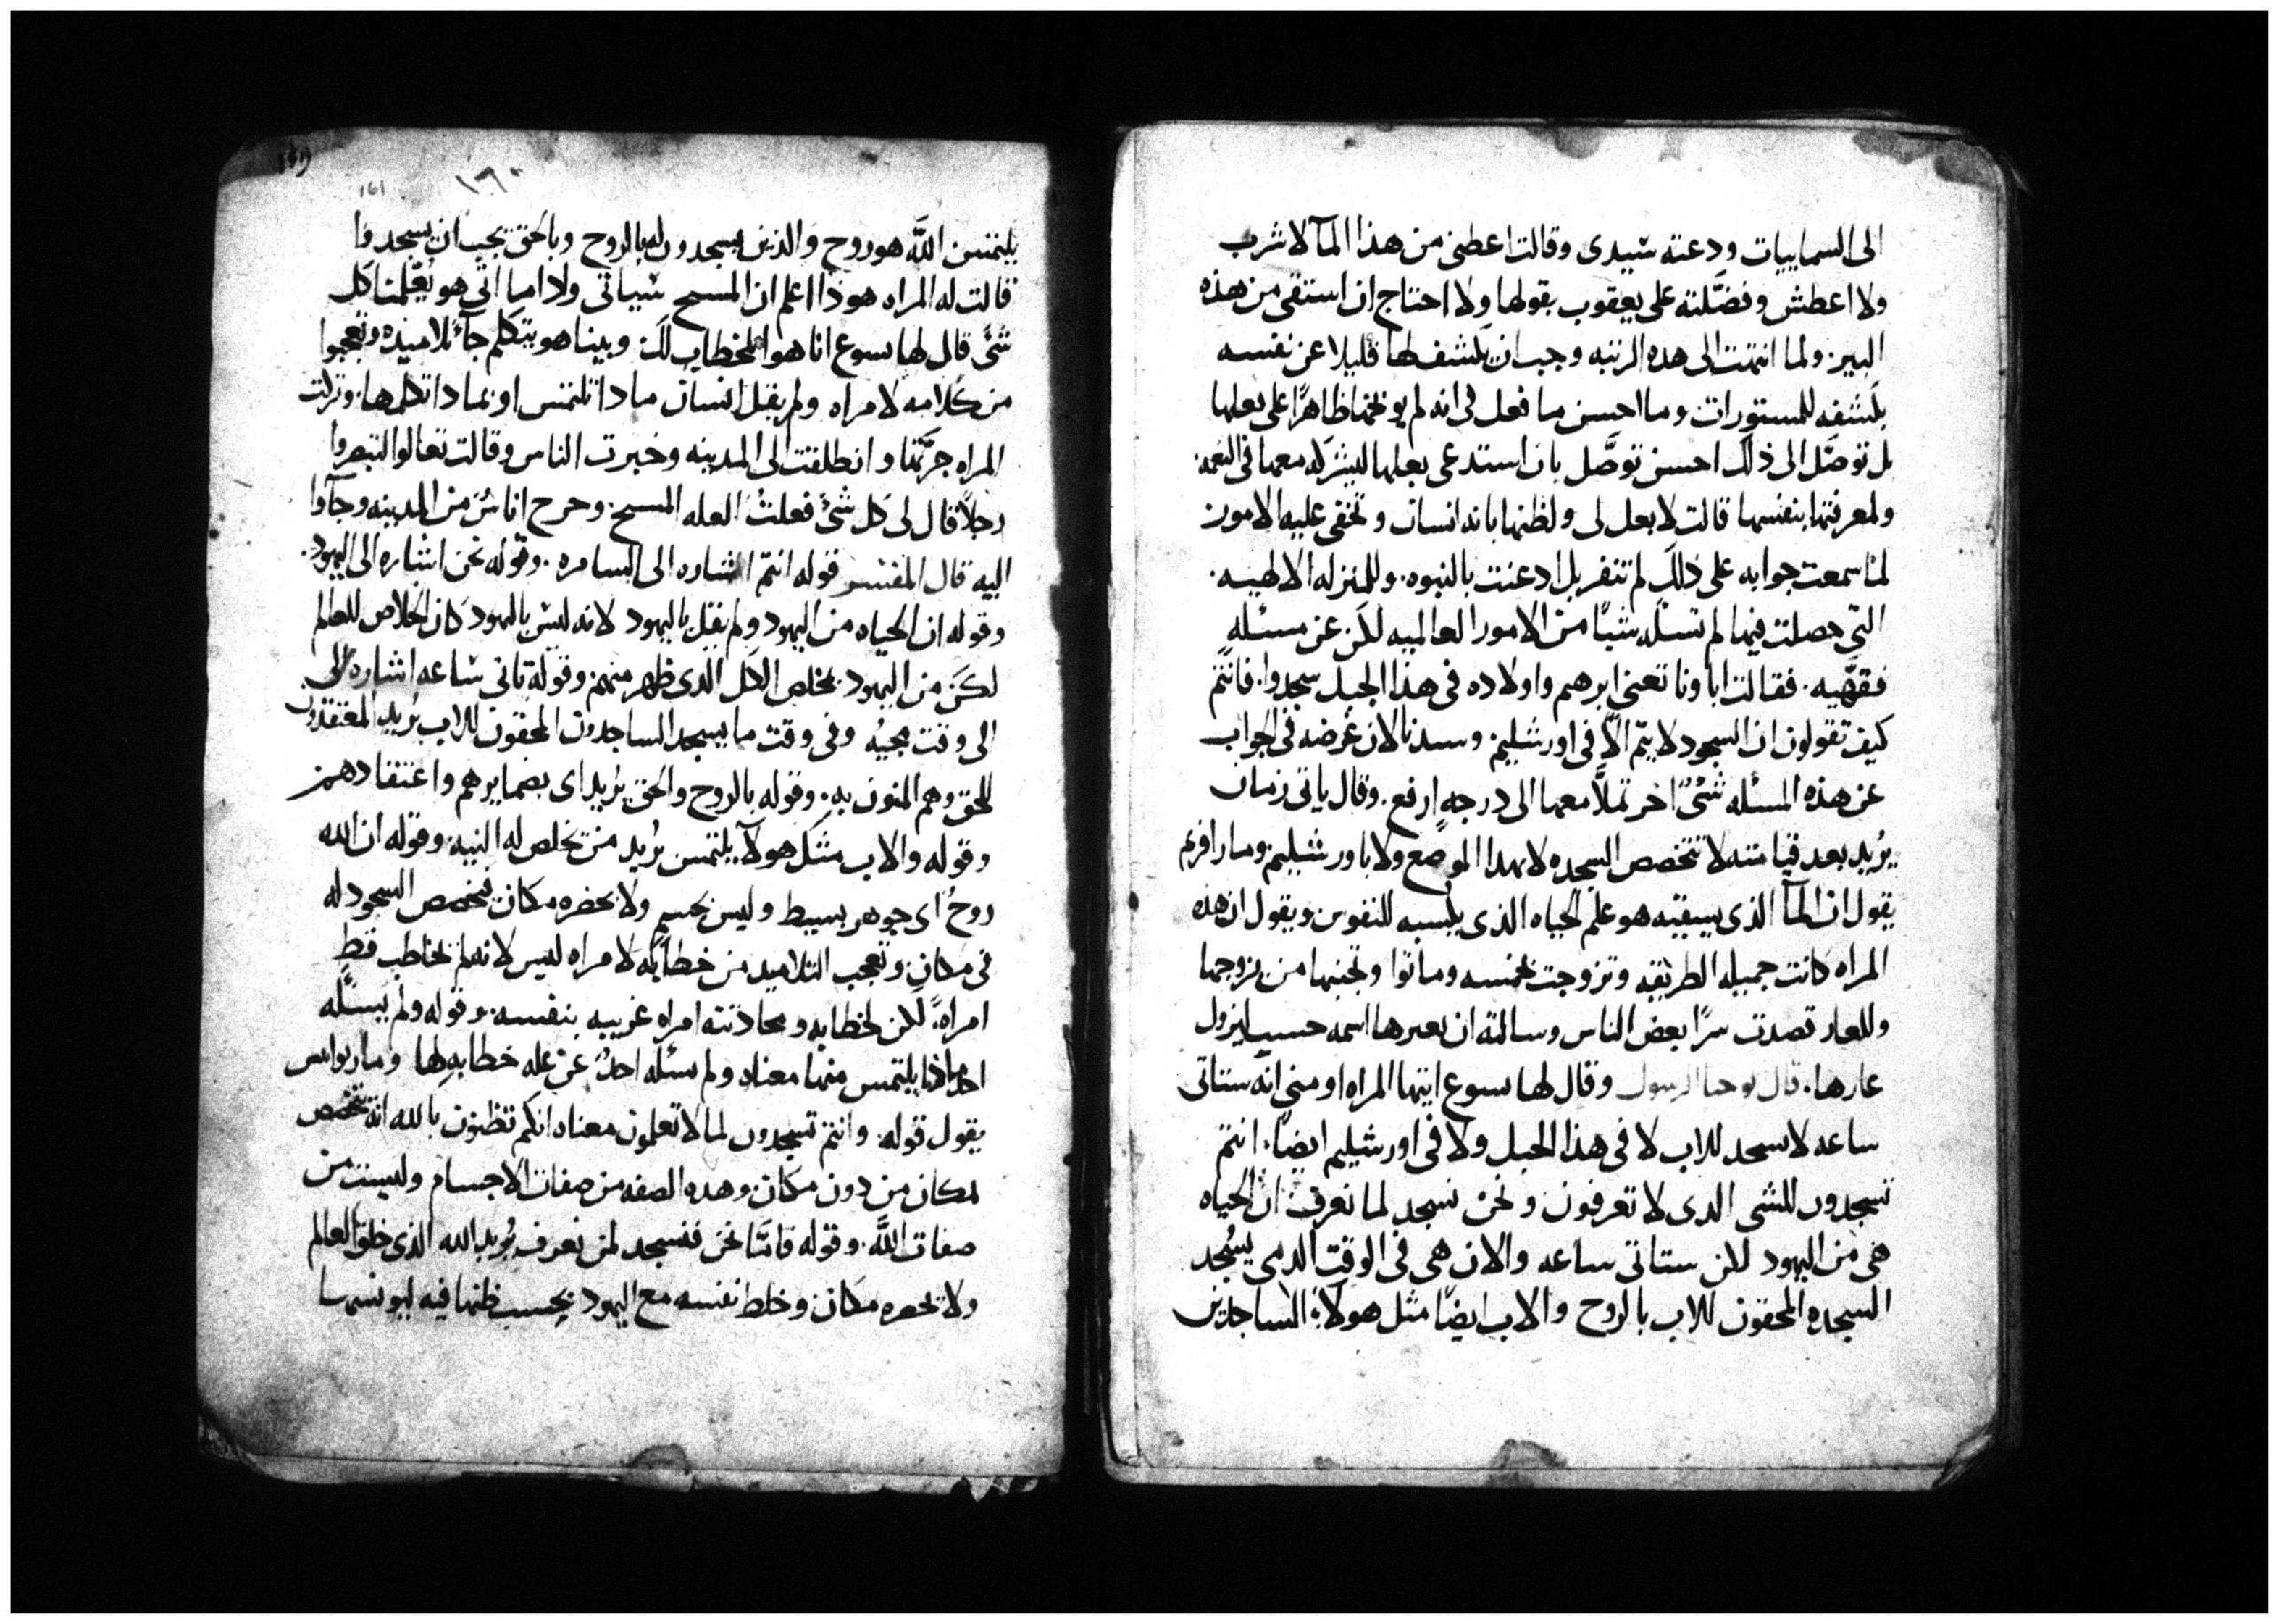 الى السماييات ودعته سيدى وقالت اعطنى من هذا المآ لاشرب
ولا اعطش وفضَّلته على يعقوب بقولها ولا احتاج ان استقى من هذه
البير. ولما انتهت الى هده الرتبه وجب ان يكشف لها قليلا عن نفسه
بكشفه للمستورات وما احسن ما فعل فى انه لم يوبخها ظاهرًا على بعلها
بل توصَّل الى ذلك احسن توصَّل بان استدعى بعلها ليشركه معها فى النعمه.
ولمعرفتها بنفسها قالت لا بعل لى ولظنها بانه انسان وتخفى عليه الامور
لما سمعت جوابه على ذلك لم تنفر بل ادعنت بالنبوه. وللمنزله الالهيه.
التى حصلت فيها لم تسئله شيًا من الامور العالميه لكن عن مسئلهٍ
فقهّيه. فقالت اباونا تعنى ابرهيم واولاده فى هذا الجبل سجدوا. فانتم
كيف تقولون ان السجود لا يتم الَّا فى اورشليم. وسيدنا لان غرضه فى الجواب
عن هذه المسئله شئٌ اخر تملَّا معها الى درجهٍ ارفع. وقال ياتى زمان
يُريد بعد قيامته لا تتخصص السجده لا بهدا الموضع ولا باورشليم. ومار افرم
يقول ان المآ الذى يسقيه هو علم الحياه الذى يلبسه للنفوس ويقول ان هذه
المراه كانت جميله الطريقه وتزوجت بخمسه وماتوا وتجنبها من يزوجها
وللعار تصدت سرًا بعض الناس وسالته ان يعيرها اسمه حسب ليزول
عارها. قال يوحنا الرسول وقال لها يسوع ايتها المراه اومنى انه ستاتى
ساعه لا يسجد للاب لا فى هذا الجبل ولا فى اورشليم ايضًا. انتم
تسجدون للشى الدى لا تعرفون ونحن نسجد لما نعرف ان الحياه
هى من اليهود لكن ستاتى ساعه والان هى فى الوقت الدى يسُجد
السجده المحقون للاب بالروح والاب ايضًا مثل هولآ الساجدين
١٦٠
161
يلتمس الله هو روح والذين يسجدون له بالروح وبالحق يجب ان يسجدوا
قالت له المراه هوذا اعلم ان المسيح سياتى واداما اتى هو يُعلمنا كل
شئ قال لها يسوع انا هو المخطاب لك وبينا هو يتكلم جآ تلاميذه وتعجبوا
من كلامه لامراه ولم يقل انسان مادا تلتمس او بمادا تكلمها. وتركت
المراه جرّتها وانطلقت الى المدينه وخبرت الناس وقالت تعالوا لتبصروا
رجلًا قال لى كل شئ فعلتُ العله المسيح. وخرج اناسٌ من المدينه وجآوا
اليه قال المفسر قوله انتم اشاره الى السامره. وقوله نحن اشاره الى اليهود.
وقوله ان الحياه من اليهود ولم يقل باليهود لانه ليس باليهود كان الخلاص للعالم
لكن من اليهود. مخلص الكل الدى ظهر منهم وقوله تاتى ساعه اشاره الى
الى وقت مجيُه وفى وقت ما يسجد الساجدون المحقون للاب يُريد المعتقدون
للحق وهم المنون به. وقوله بالروح والحق يُريد اى بضمايرهم واعتقادهم
وقوله والاب مثل هولآ يلتمس يُريد من تخلص له النيه. وقوله ان الله
روحٌ اى جوهر بسيط وليس بجسمٍ ولا يحضره مكان فيخصص السجود له
فى مكان وتعجب التلاميد من خطابه لامراه ليس لانه لم يخاطب قط
امراةً. لكن لخطابه ومحادثته امراه غريبه بنفسه. وقوله ولم يسئله
احد ماذا يلتمس منها معناه ولم يسئله احدٌ عن عله خطابه لها ومار يوانيس
يقول قوله. وانتم تسجدون لما لا تعلمون معناه انكم تظنون بالله انه يتخصص
بمكان من دون مكان. وهده الصفه من صفات الاجسام وليست من
صفات الله. وقوله فامَّا نحن فنسجد لمن نعرف يُريد الله الذى خلق العالم
ولا يحصره مكان وخلط نفسه مع اليهود بحسب ظنها فيه